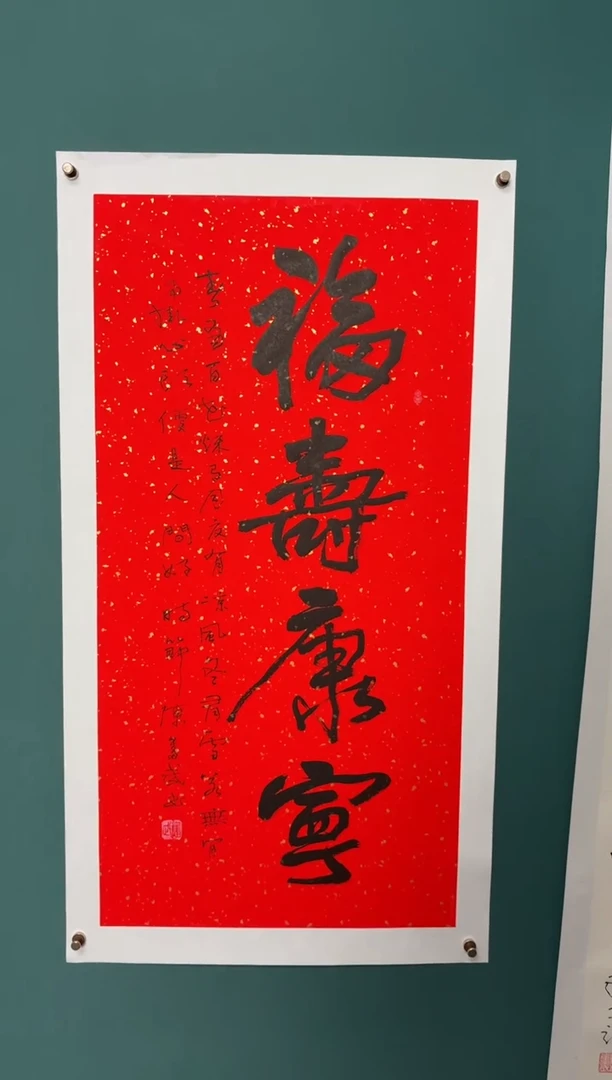 福壽康寧
春有百花秋有月夏有涼風冬有雪若無閒
事掛心頭便是人間好時節